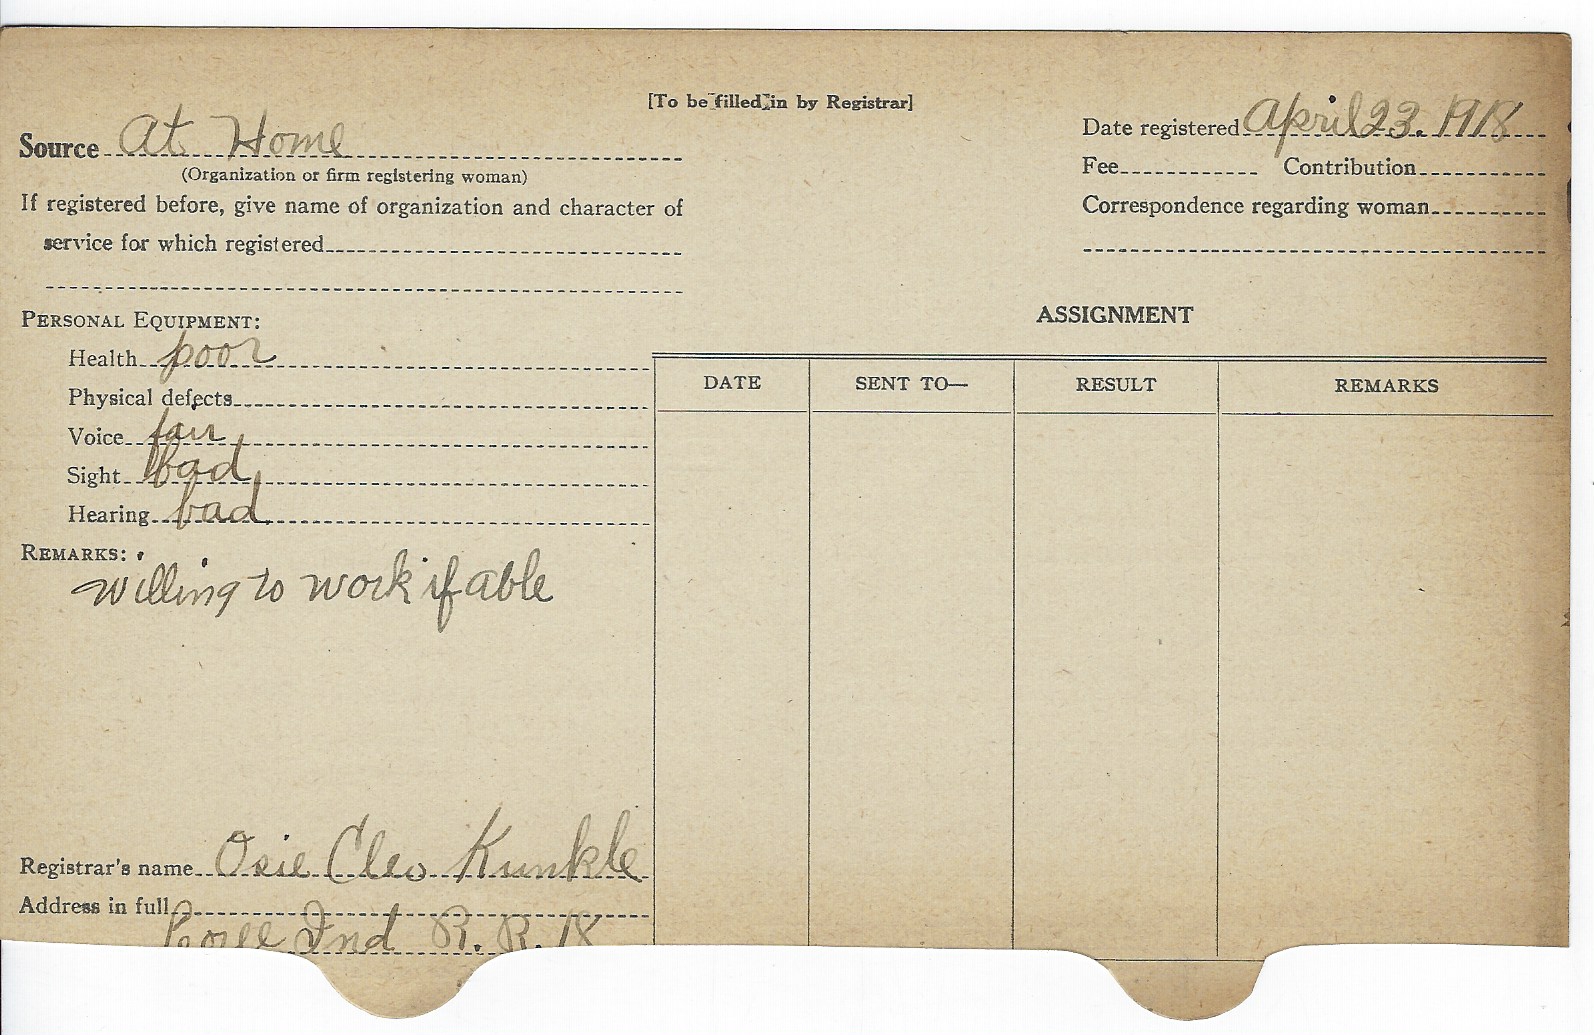 [To be filled in by Registrar]
Source At Home
(Organization or firm registering woman)
If registered before, give name of organization and character of
service for which registered
Date registered April 23. 1918
Fee Contribution
Correspondence regarding woman
PERSONAL EQUIPMENT:
Health poor
Physical defects
Voice fair
Sight bad
Hearing bad
REMARKS:
Willing to work if able
Registrar's name Osie Cleo Kunkle
Address in full
Ind R. R. 18
ASSIGNMENT
DATE SENT TO— RESULT REMARKS